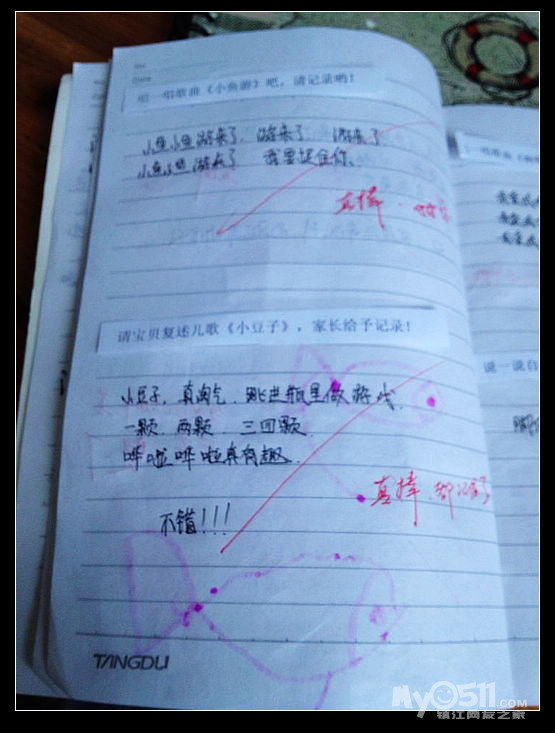 No
Date
唱一唱歌曲《小鱼游》吧，请记录哟！
小鱼小鱼游来了 游来了 游来了
小鱼小鱼游来了 我要捉住你、
真棒．
请宝贝复述儿歌《小豆子》，家长给予记录！
小豆子，真淘气．跳进瓶里做游戏．
一颗．两颗．三四颗．
哗啦哗啦真有趣．
真棒．都记住了
不错!!!
TANGDU
说一说自
My0511.COM
镇江网友之家